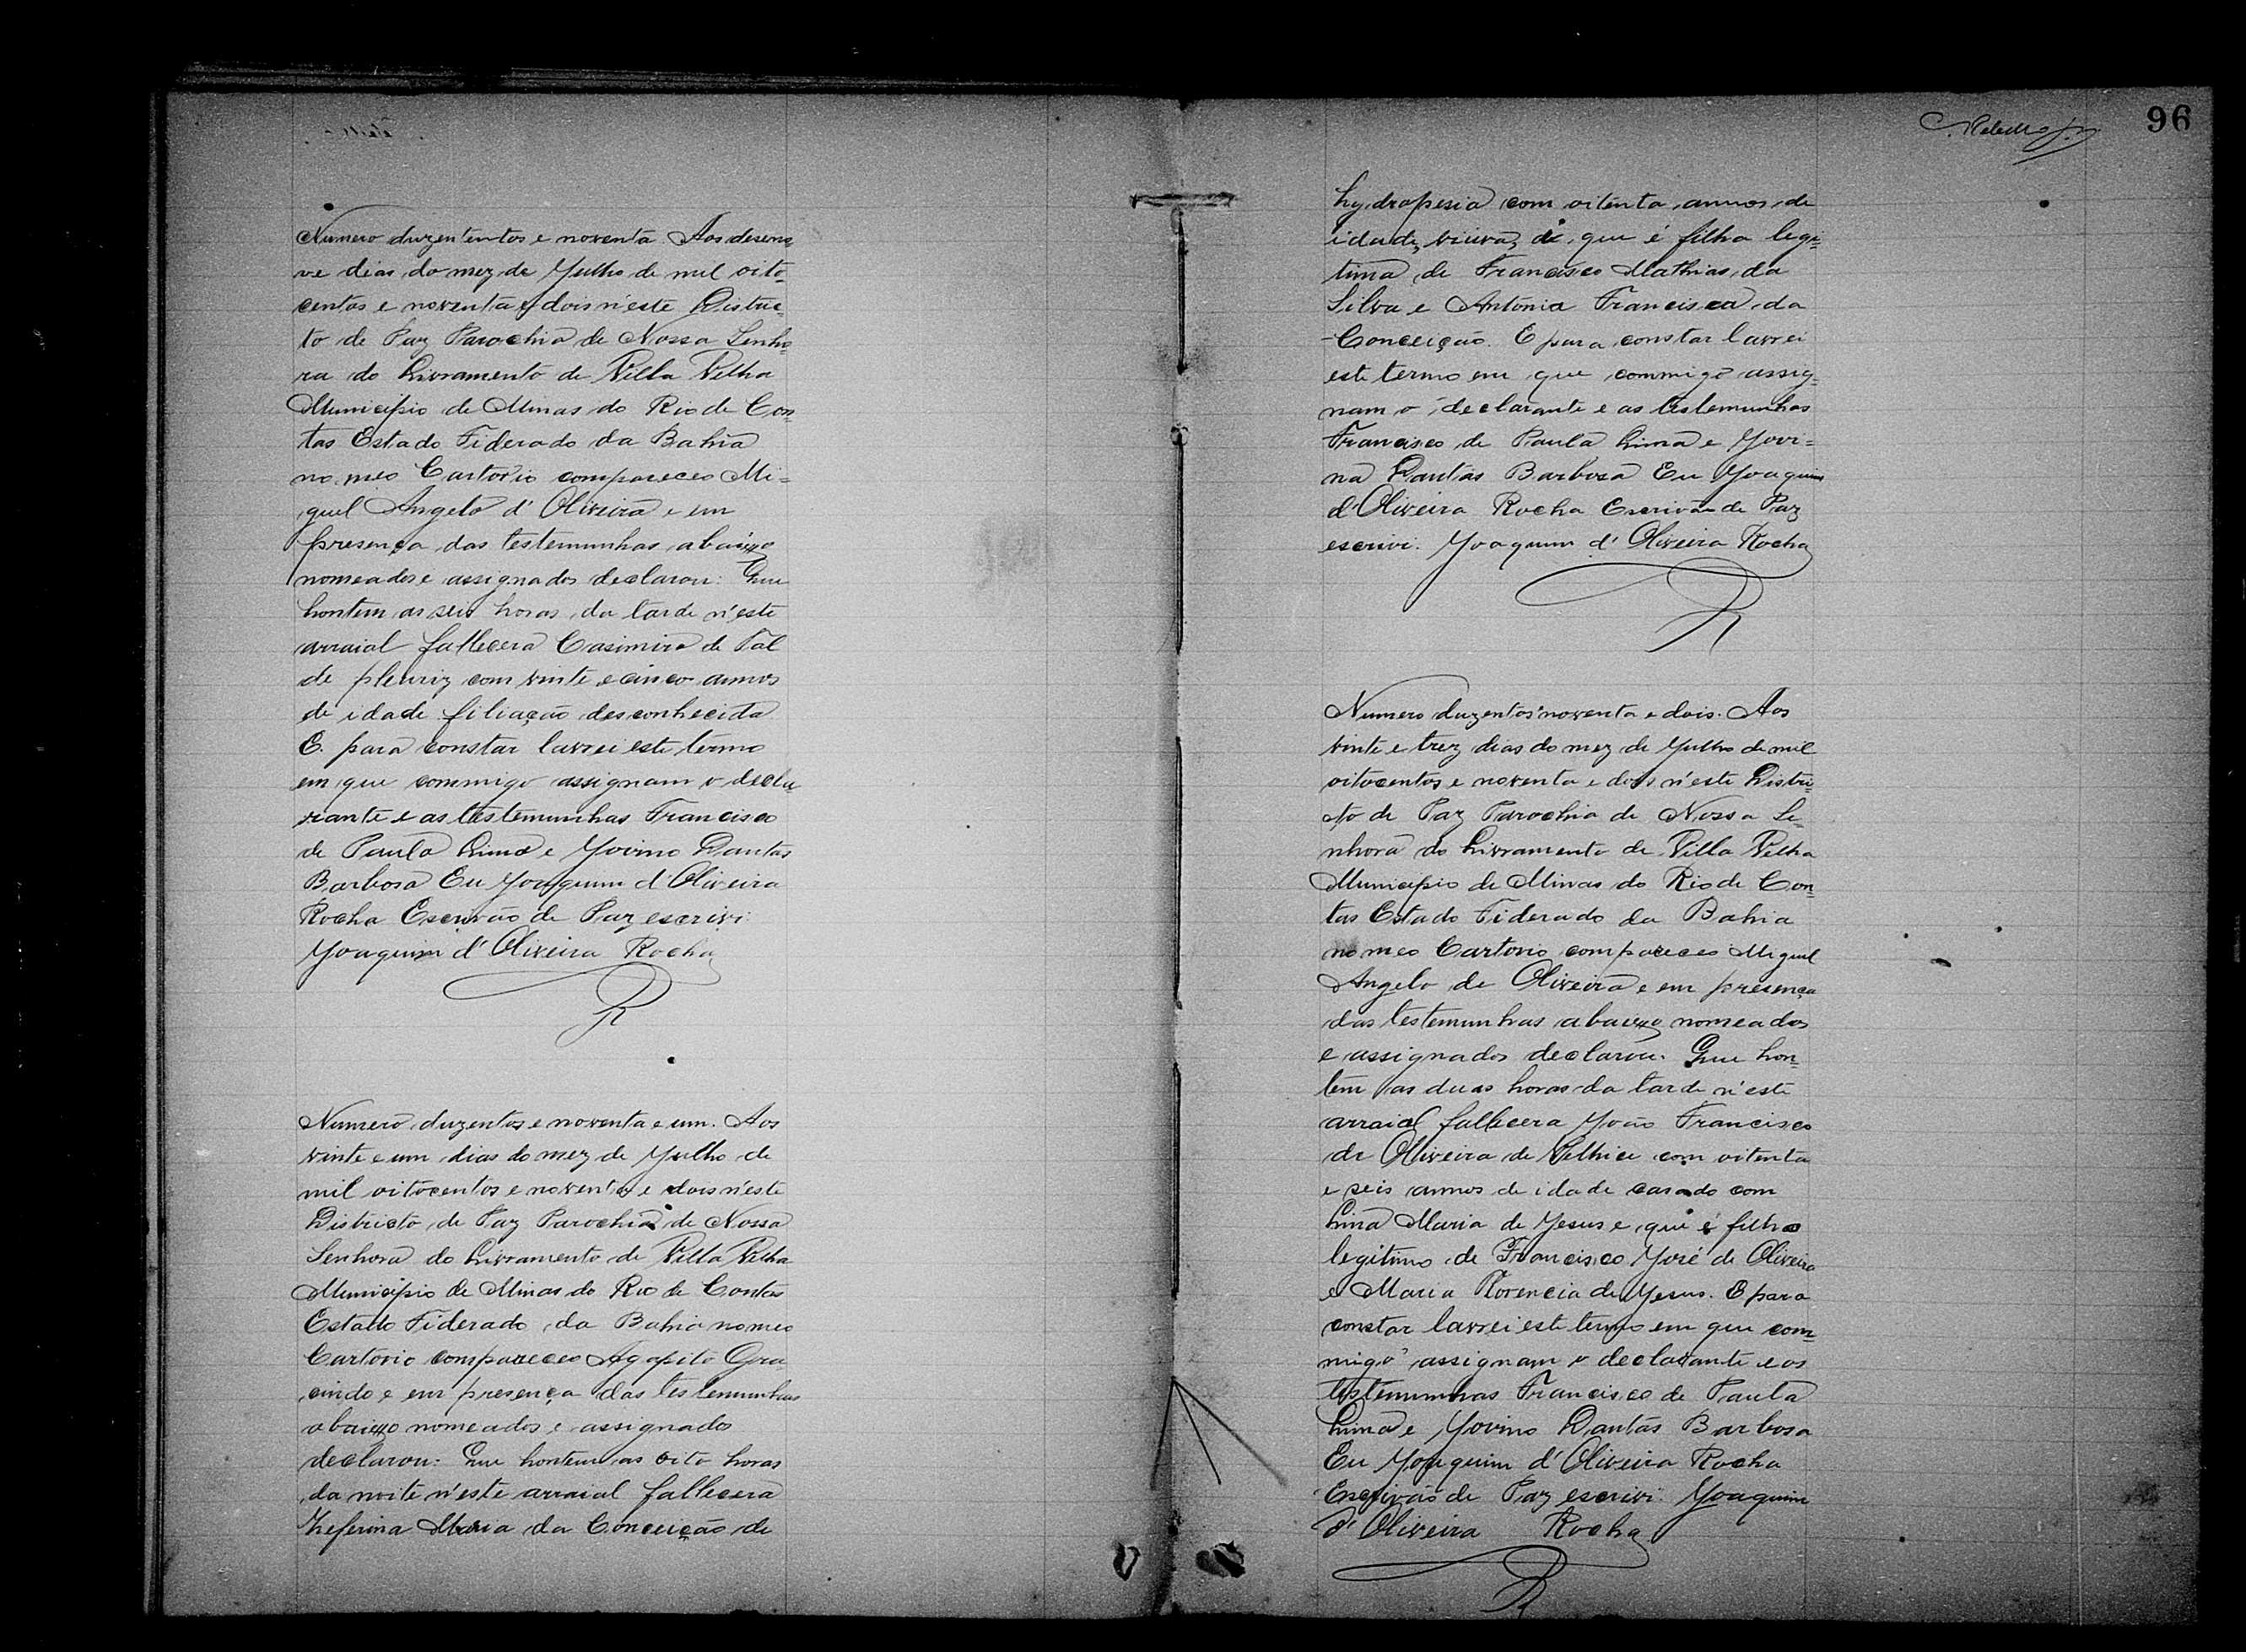 Numero duzententos e noventa Aos deseno
ve dias do mez de Julho de mil oito
centos e noventa e dois n'este Distric-
to de Paz Parochia de Nossa Senho-
ra do Livramento de Villa Velha
Municipio de Minas do Rio de Con
tas Estado Fiderado da Bahia
no meo Cartorio compareceo Mi=
guel Angelo d'Oliveira e em
presença das testemunhas abaixo
nomeados e assignados declarou: Que
hontem as seis horas da tarde n'este
arraial fallecera Casimira de Tal
de pleuriz com vinte e cinco annos
de idade filiação desconhecida
E. para constar lavrei este termo
em que commigo assignam o decla-
rante e as testemunhas Francisco
de Paula Lima e Jovino Dantas
Barbosa Eu Joaquim d'Oliveira
Rocha Escrivão de Paz escrivi
Joaquim d'Oliveira Rocha
Numero duzentos e noventa e um. Aos
vinte e um dias do mez de Julho de
mil oitocentos e noventa e dois n'este
Districto de Paz Parochia de Nossa
Senhora do Livramento de Villa Velha
Municipio de Minas do Rio de Contas
Estado Fiderado da Bahia no meo
Cartorio compareceo Agapito Gra
cindo e em presença das testemunhas
abaixo nomeados e assignados
declarou: Que hontem as oito horas
da noite n'este arraial fallecera
Zeferina Maria da Conceição de
96
hydropesia com oitenta annos de
idade, viuva, di que é filha legi-
tima de Francisco Mathias da
Silva e Antonia Francisca da
Conceição. E para constar lavrei
este termo em que commigo assig-
nam o declarante e as testemunhas
Francisco de Paula Lima e Jovi=
no Dantas Barbosa Eu Joaquim
d'Oliveira Rocha Escrivão de Paz
escrivi. Joaquim d'Oliveira Rocha
Numero duzentos noventa e dois. Aos
vinte e trez dias do mez de Julho de mil
oitocentos e noventa e dois n'este Distri-
cto de Paz Parochia de Nossa Se-
nhora do Livramento de Villa Velha
Municipio de Minas do Rio de Con-
tas Estado Fiderado da Bahia
no meo Cartorio compareceo Miguel
Angelo de Oliveira e em presença
das testemunhas abaixo nomeados
e assignados declarou. Que hon-
tem as duas horas da tarde n'este
arraial fallecera João Francisco
de Oliveira de Velhice com oitenta
e seis annos de idade casado com
Lina Maria de Jesus e que é filho
legitimo de Francisco José de Oliveira
e Maria Florencia de Jesus. E para
constar lavrei este termo em que com-
migo assignam o declarante e as
testemunhas Francisco de Paula
Lima e Jovino Dantas Barbosa
Eu Joaquim d'Oliveira Rocha
Escrivão de Paz escrivi. Joaquim
d'Oliveira Rocha